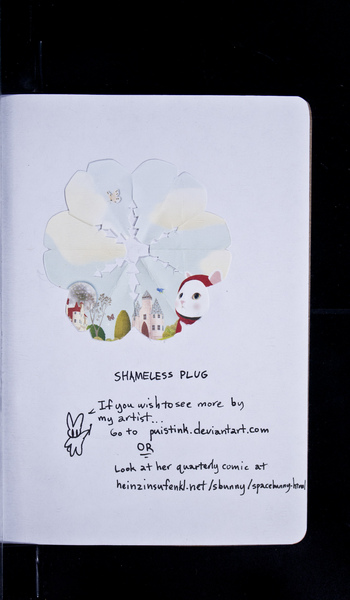 SHAMELESS PLUG
If you wish to see more by
my artist...
Go to puistink.deviantart.com
OR
Look at her quarterly comic at
heinzinsufenkl.net/sbunny/spacebunny.html